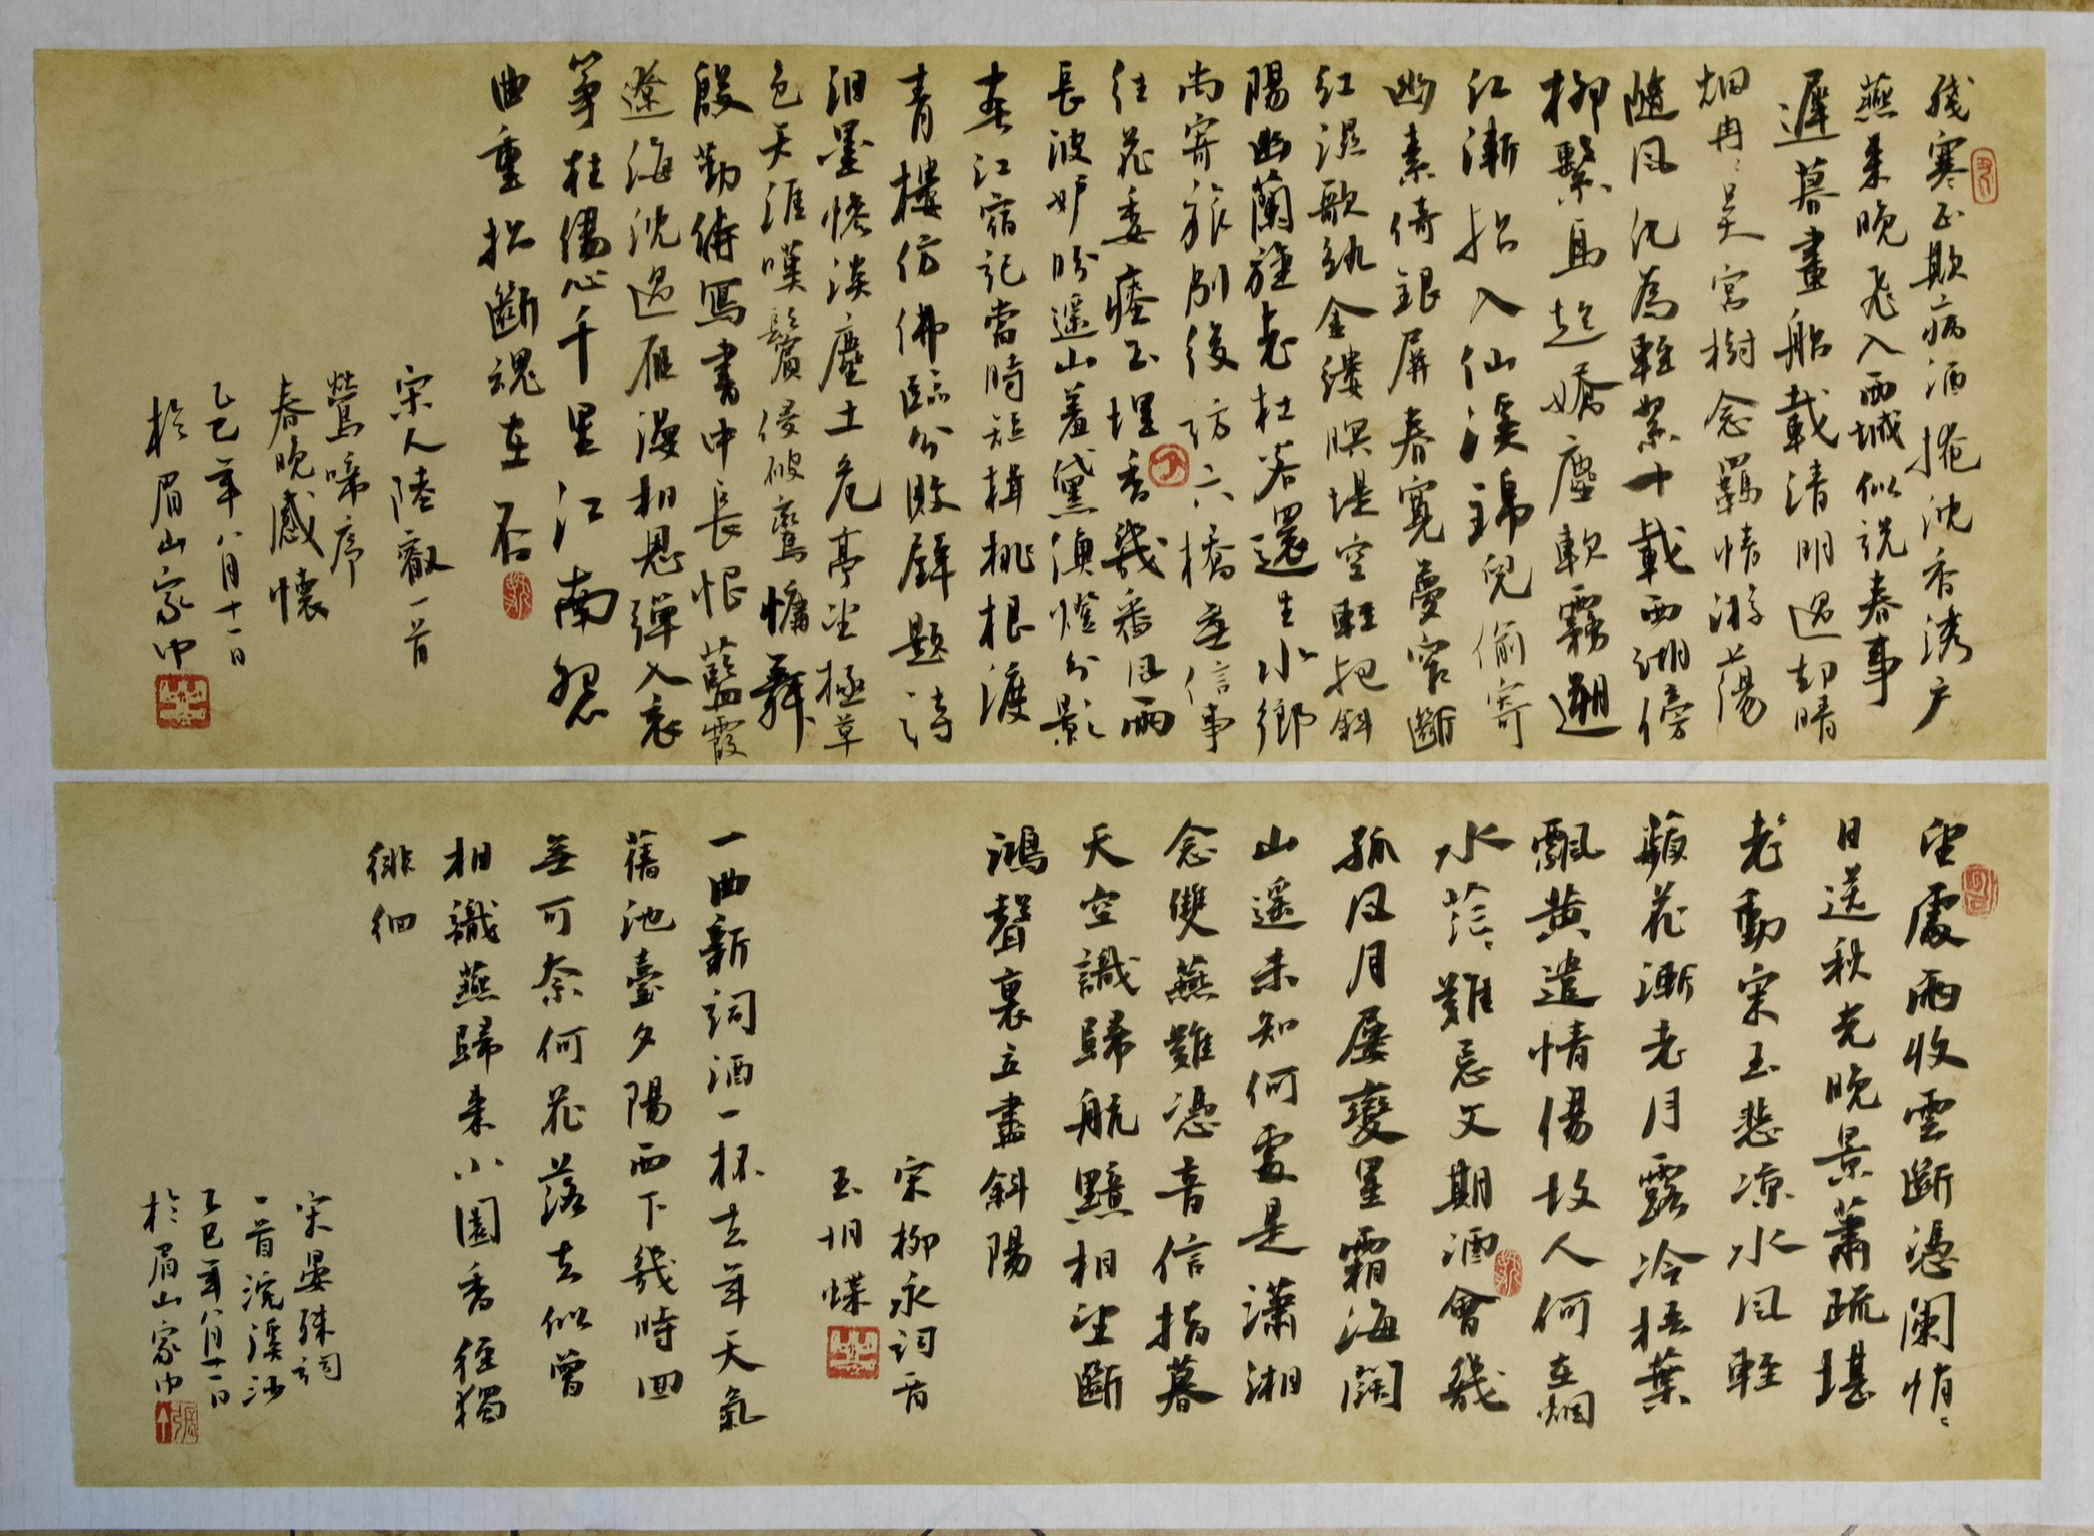 殘寒正欺病酒掩沈香綉户
燕來晚飛入西城似說春事
遲暮畫船載清明過却晴
烟冉冉吳宮樹念羈情游蕩
隨風化為輕絮十載西湖傍
柳繫馬趁嬌塵軟霧遡
紅漸招入仙溪錦兒偷寄
幽素倚銀屏春寬夢窄斷
紅濕歌紈金縷暝堤空輕把斜
陽幽蘭旋老杜若還生水鄉
尚寄旅別後訪六橋無信事
往花委瘞玉埋香幾番風雨
長波妒盼遙山羞黛漁燈分影
春江宿記當時短楫桃根渡
青樓仿佛臨分敗壁題詩
泪墨慘淡塵土危亭望極草
色天涯嘆鬢侵破鸞慵舞
殷勤待寫書中長恨藍霞
遼海沈過雁漫相思彈入哀
箏柱傷心千里江南怨
曲重招斷魂在否
宋人陸叡一首
鶯啼序
春晚感懷
乙巳年八月十一日
於眉山家中
望處雨收雲斷憑闌悄悄
目送秋光晚景蕭疏堪
老動宋玉悲凉水風輕
蘋花漸老月露冷梧葉
飄黃遣情傷故人何在烟
水茫茫難忘文期酒會幾
孤風月屢變星霜海闊
山遥未知何處是瀟湘
念雙燕難憑音信指暮
天空識歸航黯相望斷
鴻聲裏立盡斜陽
宋柳永詞一首
玉蝴蝶
一曲新詞酒一杯去年天氣
舊池臺夕陽西下幾時回
無可奈何花落去似曾
相識燕歸來小園香徑獨
徘徊
宋晏殊詞
一首浣溪沙
乙巳年八月十一日
於眉山家中